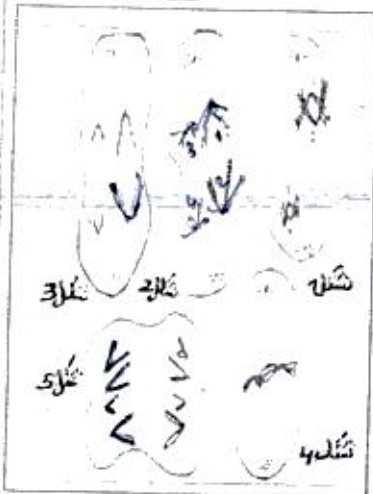 شكل3 شكل2 شكل1
شكل5
شكل4